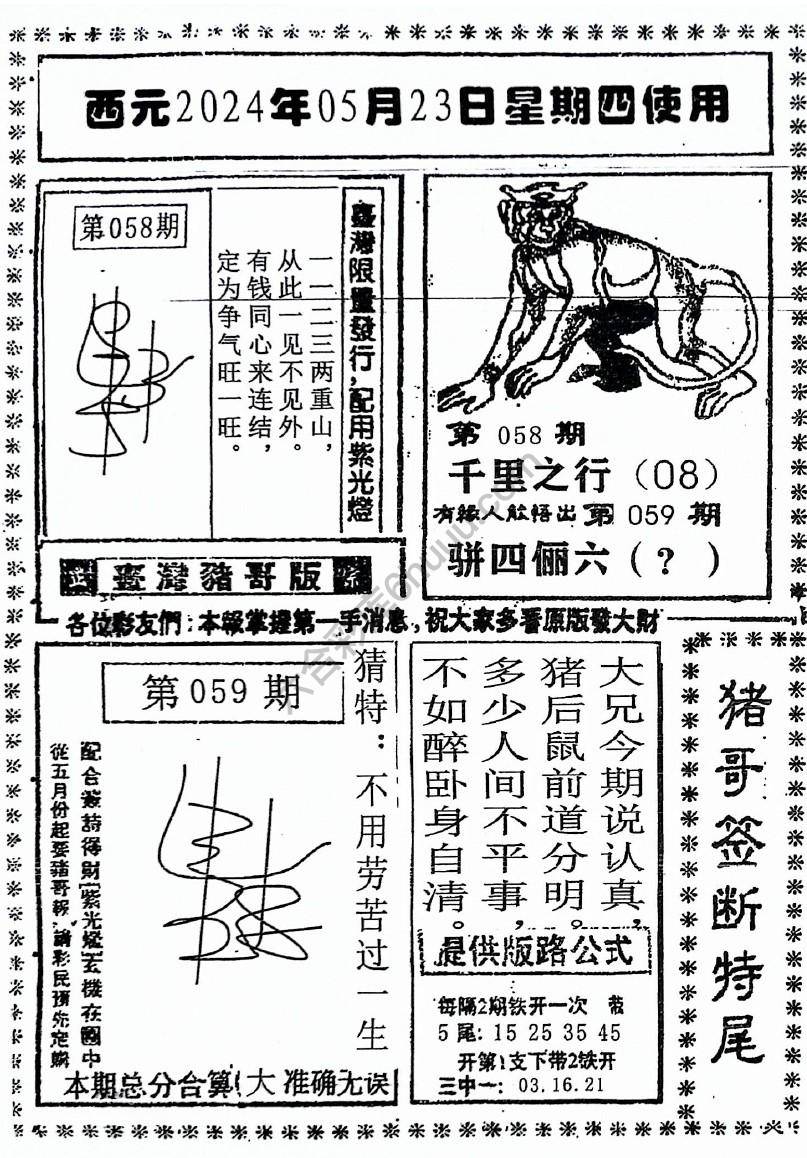 西元2024年05月23日星期四使用
臺灣限量發行，配用紫光燈
一一二三两重山，
从此一见不见外。
有钱同心来连结，
定为争气旺一旺。
第058期
第 058 期
千里之行（08）
有緣人能悟出 第 059 期
骈四俪六（？）
臺灣豬哥版
各位彩友們：本報掌握第一手消息，祝大家多看原版發大財
猜特：不用劳苦过一生
第 059 期
配合簽詩得財紫光燈玄機在圖中
從五月份起要豬哥報，請彩民預先定購
本期总分合算（大 准确无误
大兄今期说认真，
猪后鼠前道分明。
多少人间不平事，
不如醉卧身自清。
提供版路公式
每隔2期铁开一次 带
5 尾: 15 25 35 45
开第1支下带2铁开
三中一: 03.16.21
猪哥签断特尾